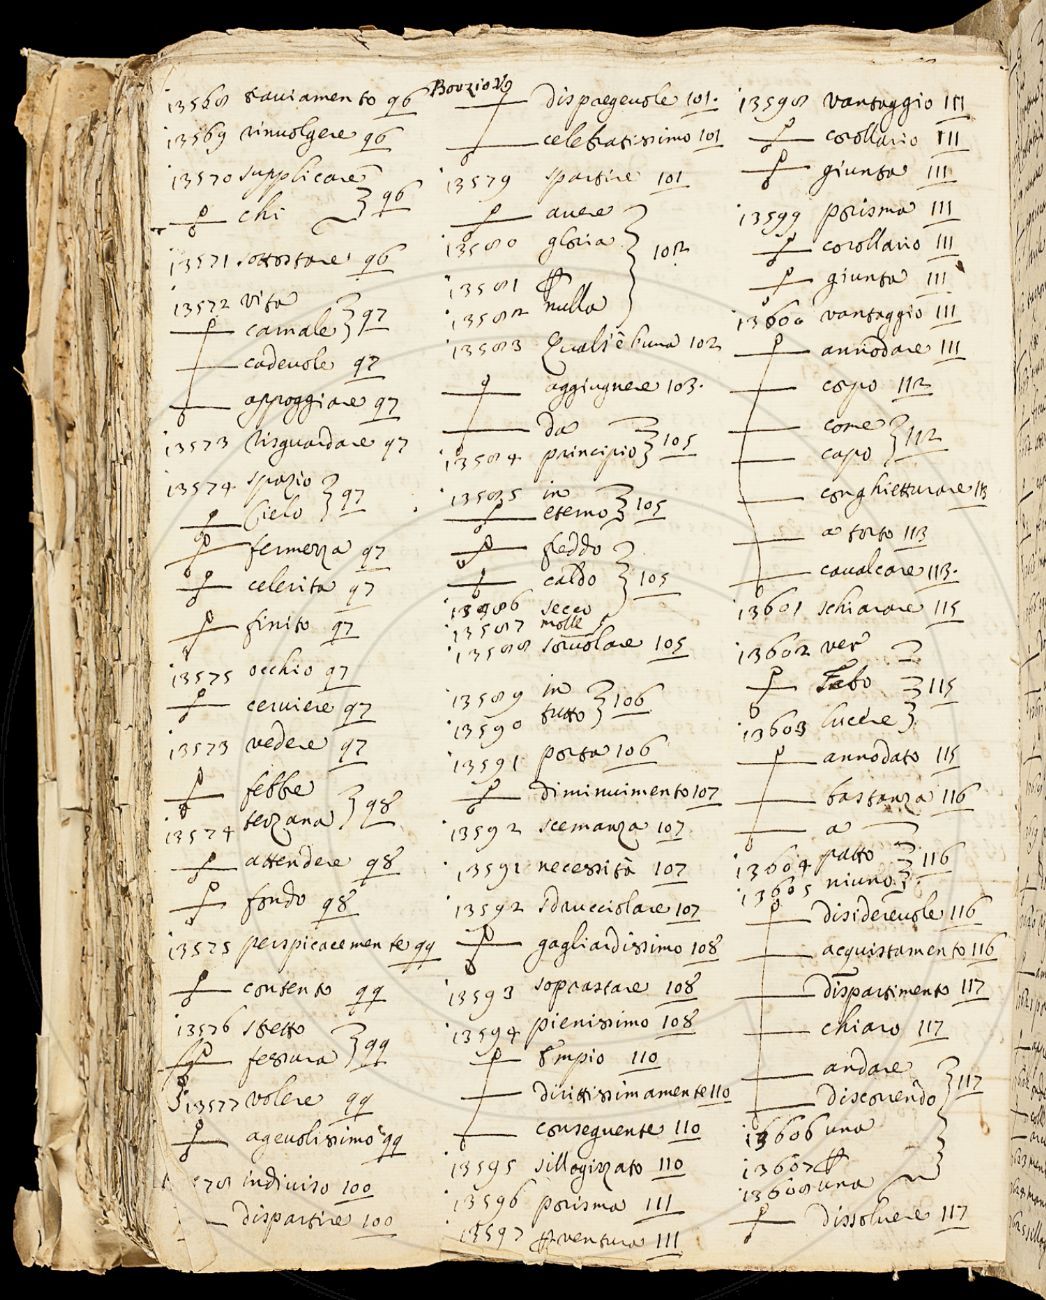 13568 sauiamento 96
13569 rinuolgere 96
13570 supplicare
chi 96
13571 sottostare 96
13572 vita
carnale 97
cadeuole 97
appoggiare 97
13573 risguardare 97
13574 spazio
Cielo 97
fermezza 97
celerità 97
finito 97
13575 occhio 97
ceruiere 97
13573 vedere 97
febbre
13574 terzana 98
attendere 98
fondo 98
13575 perspicacemente 99
contento 99
13576 stretto
fessura 99
13577 volere 99
ageuolissimo 99
578 indiuiso 100
dispartire 100
Boezio Vo
dispregeuole 101.
celebratissimo 101
13579 spartire 101
auere
13580 gloria
13581
13582 nulla 102
13583 Qual'è buna 102
aggiugnere 103.
da
13584 principio 105
13585 in
eterno 105
freddo
caldo 105
13586 secco
13587 molle
13588 soruolare 105
13589 in
13590 tutto 106
13591 porta 106
diminuimento 107
13592 scemanza 107
13591 necessità 107
13592 sdrucciolare 107
gagliardissimo 108
13593 soprastare 108
13594 pienissimo 108
Empio 110
dirittissimamente 110
conseguente 110
13595 sillogizzato 110
13596 porisma 111
13597 ventura 111
13598 vantaggio 111
corollario 111
giunta 111
13599 porisma 111
corollario 111
giunta 111
13600 vantaggio 111
annodare 111
corpo 112
come
capo 112
conghietturare 113
a torto 113
caualcare 113.
13601 schiarare 115
13602 ver
Febo 115
13603 lucere
annodato 115
bastanza 116
a
13604 patto 116
13605 niuno
disidereuole 116
acquistamento 116
dispartimento 117
chiaro 117
andare
discorrendo 117
13606 una
13607
13608 una
dissoluere 117